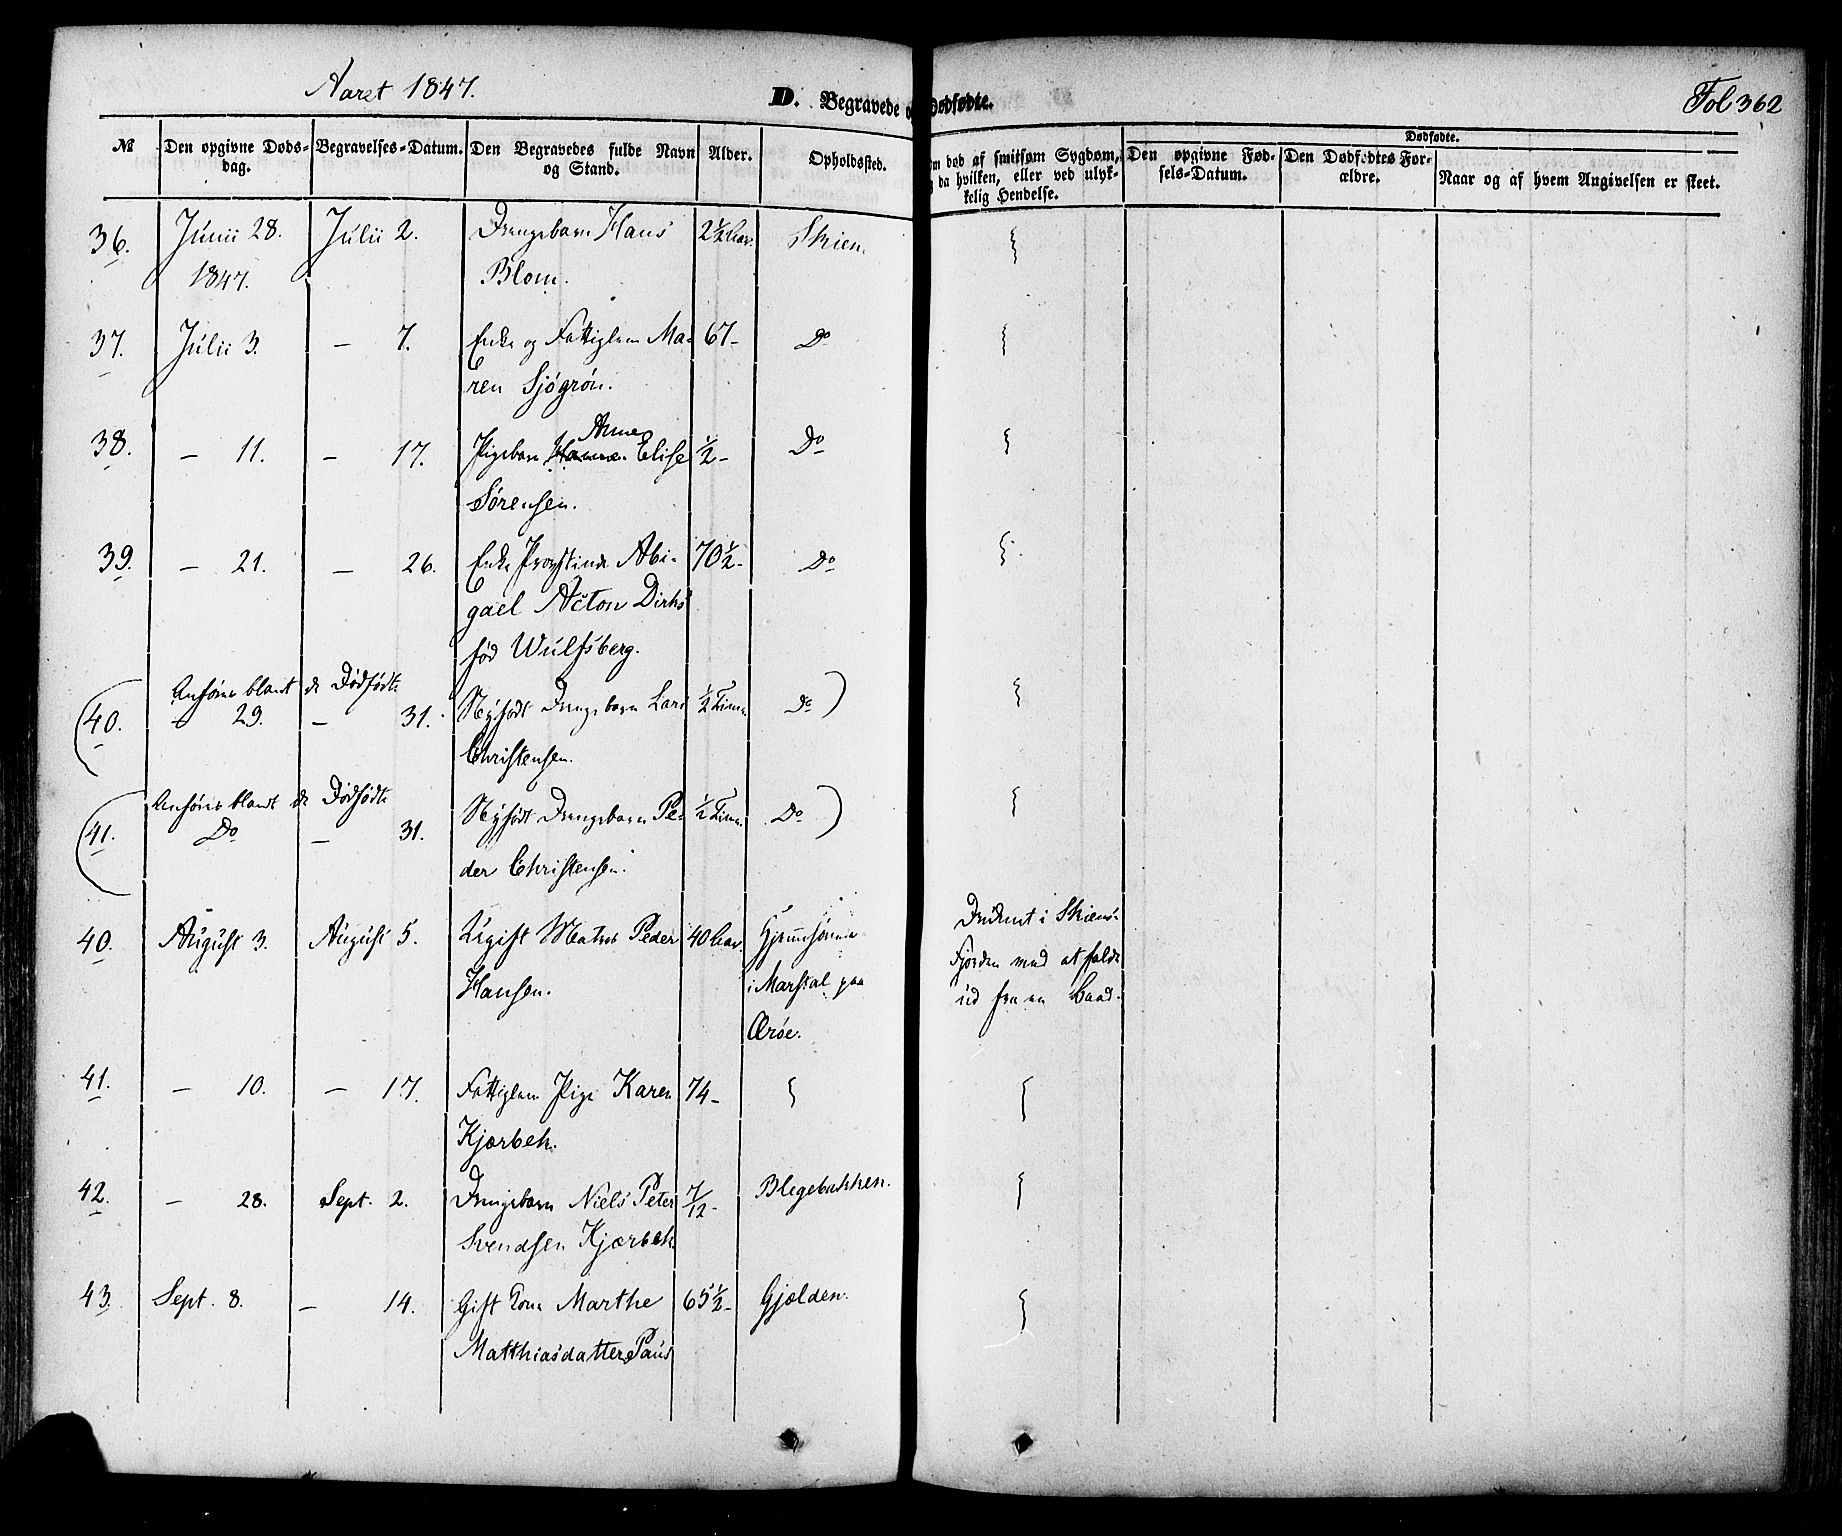 Aaret 1847.
D. Begravede og Dødfødte.
Fol 362
No
Den opgivne Døds-
dag.
Begravelses-Datum.
Den Begravedes fulde Navn
og Stand.
Alder.
Opholdssted.
Om død af smitsom Sygdom,
og da hvilken, eller ved ulyk-
kelig Hendelse.
Dødfødte.
Den opgivne Fød-
sels-Datum.
Den Dødfødtes For-
ældre.
Naar og af hvem Angivelsen er skeet.
36. Junii 28. Julii 2. Drengebarn Hans 2½ Aar. Skien.
1847. Blom.
37. Julii 3. — 7. Enke og Fattiglem Ma- 67 - Do
ren Sjögrön.
Anne
38. — 11. — 17. Pigebarn Hanne Elise ½ - Do
Sörensen.
39. — 21. — 26. Enke Provstinde Abi- 70½ - Do
gael Acton Dirks
fød Wulfsberg.
Anføres blandt de Dødfødte
(40. — 29. — 31. Nyfødt Drengebarn Lars ½ Time. Do)
Christensen.
Anføres blandt de Dødfødte
(41. Do — 31. Nyfødt Drengebarn Pe- ½ Time. Do)
der Christensen.
40. August 3. August 5. Ugift Matros Peder 40 Aar. Hjemhørende Druknet i Skiens-
Hansen. i Marstal paa Fjorden med at falde
Ærøe. ud fra en Baad.
41. — 10. — 17. Fattiglem Pige Karen 74 -
Kjærbek.
42. — 28. Sept. 2. Drengebarn Niels Peter 7/12 - Blegebakken.
Svendsen Kjærbek.
43. Sept. 8. — 14. Gift Kone Marthe 65½ - Gjælden.
Matthiasdatter Paus